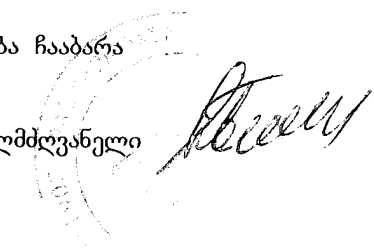 ბა ჩააბარა
ლმძღვანელი